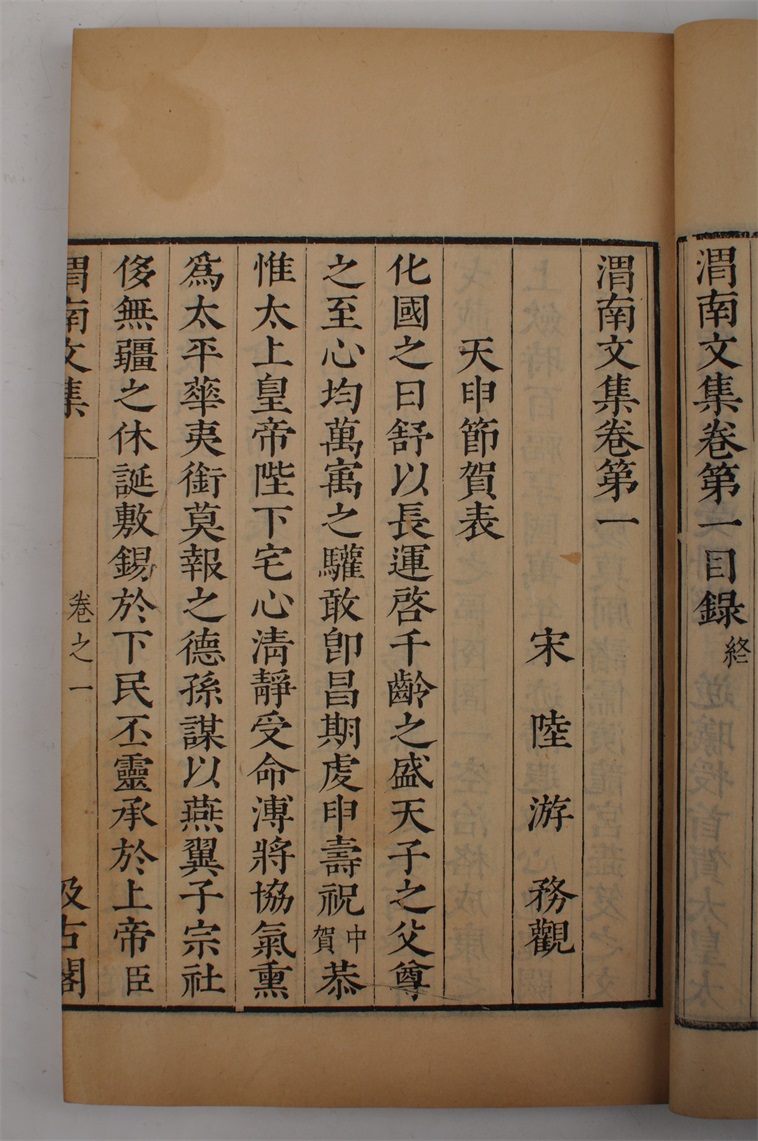 渭南文集卷第一目録終
渭南文集卷第一
宋陸游務觀
天申節賀表
化國之日舒以長運啓千齡之盛天子之父尊
之至心均萬㝢之驩敢卽昌期虔申壽祝中賀恭
惟太上皇帝陛下宅心淸靜受命溥將協氣熏
爲太平華夷銜莫報之德孫謀以燕翼子宗社
侈無疆之休誕敷錫於下民丕靈承於上帝臣
渭南文集 卷之一 汲古閣